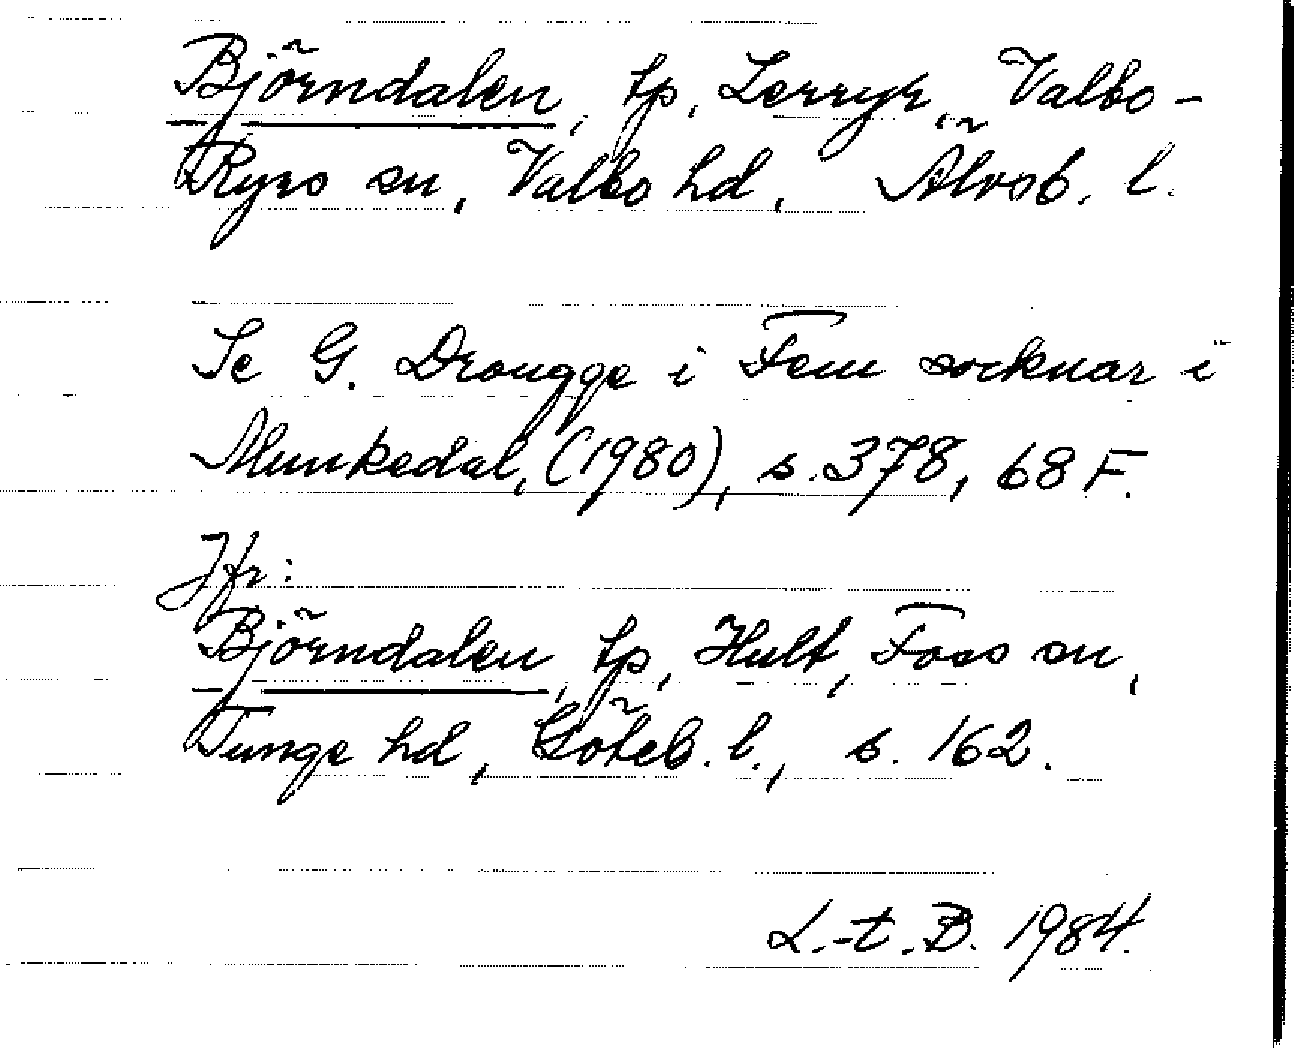 Björndalen, tp, Lerryr, Valbo-
Ryrs sn, Valbo hd, Älvsb. l.
Se G. Drougge i Fem socknar i
Munkedal, (1980), s. 378, 68 F.
Jfr:
Björndalen, tp, Hult, Foss sn,
Tunge hd, Göteb. l., s. 162.
L.-t. B. 1984.